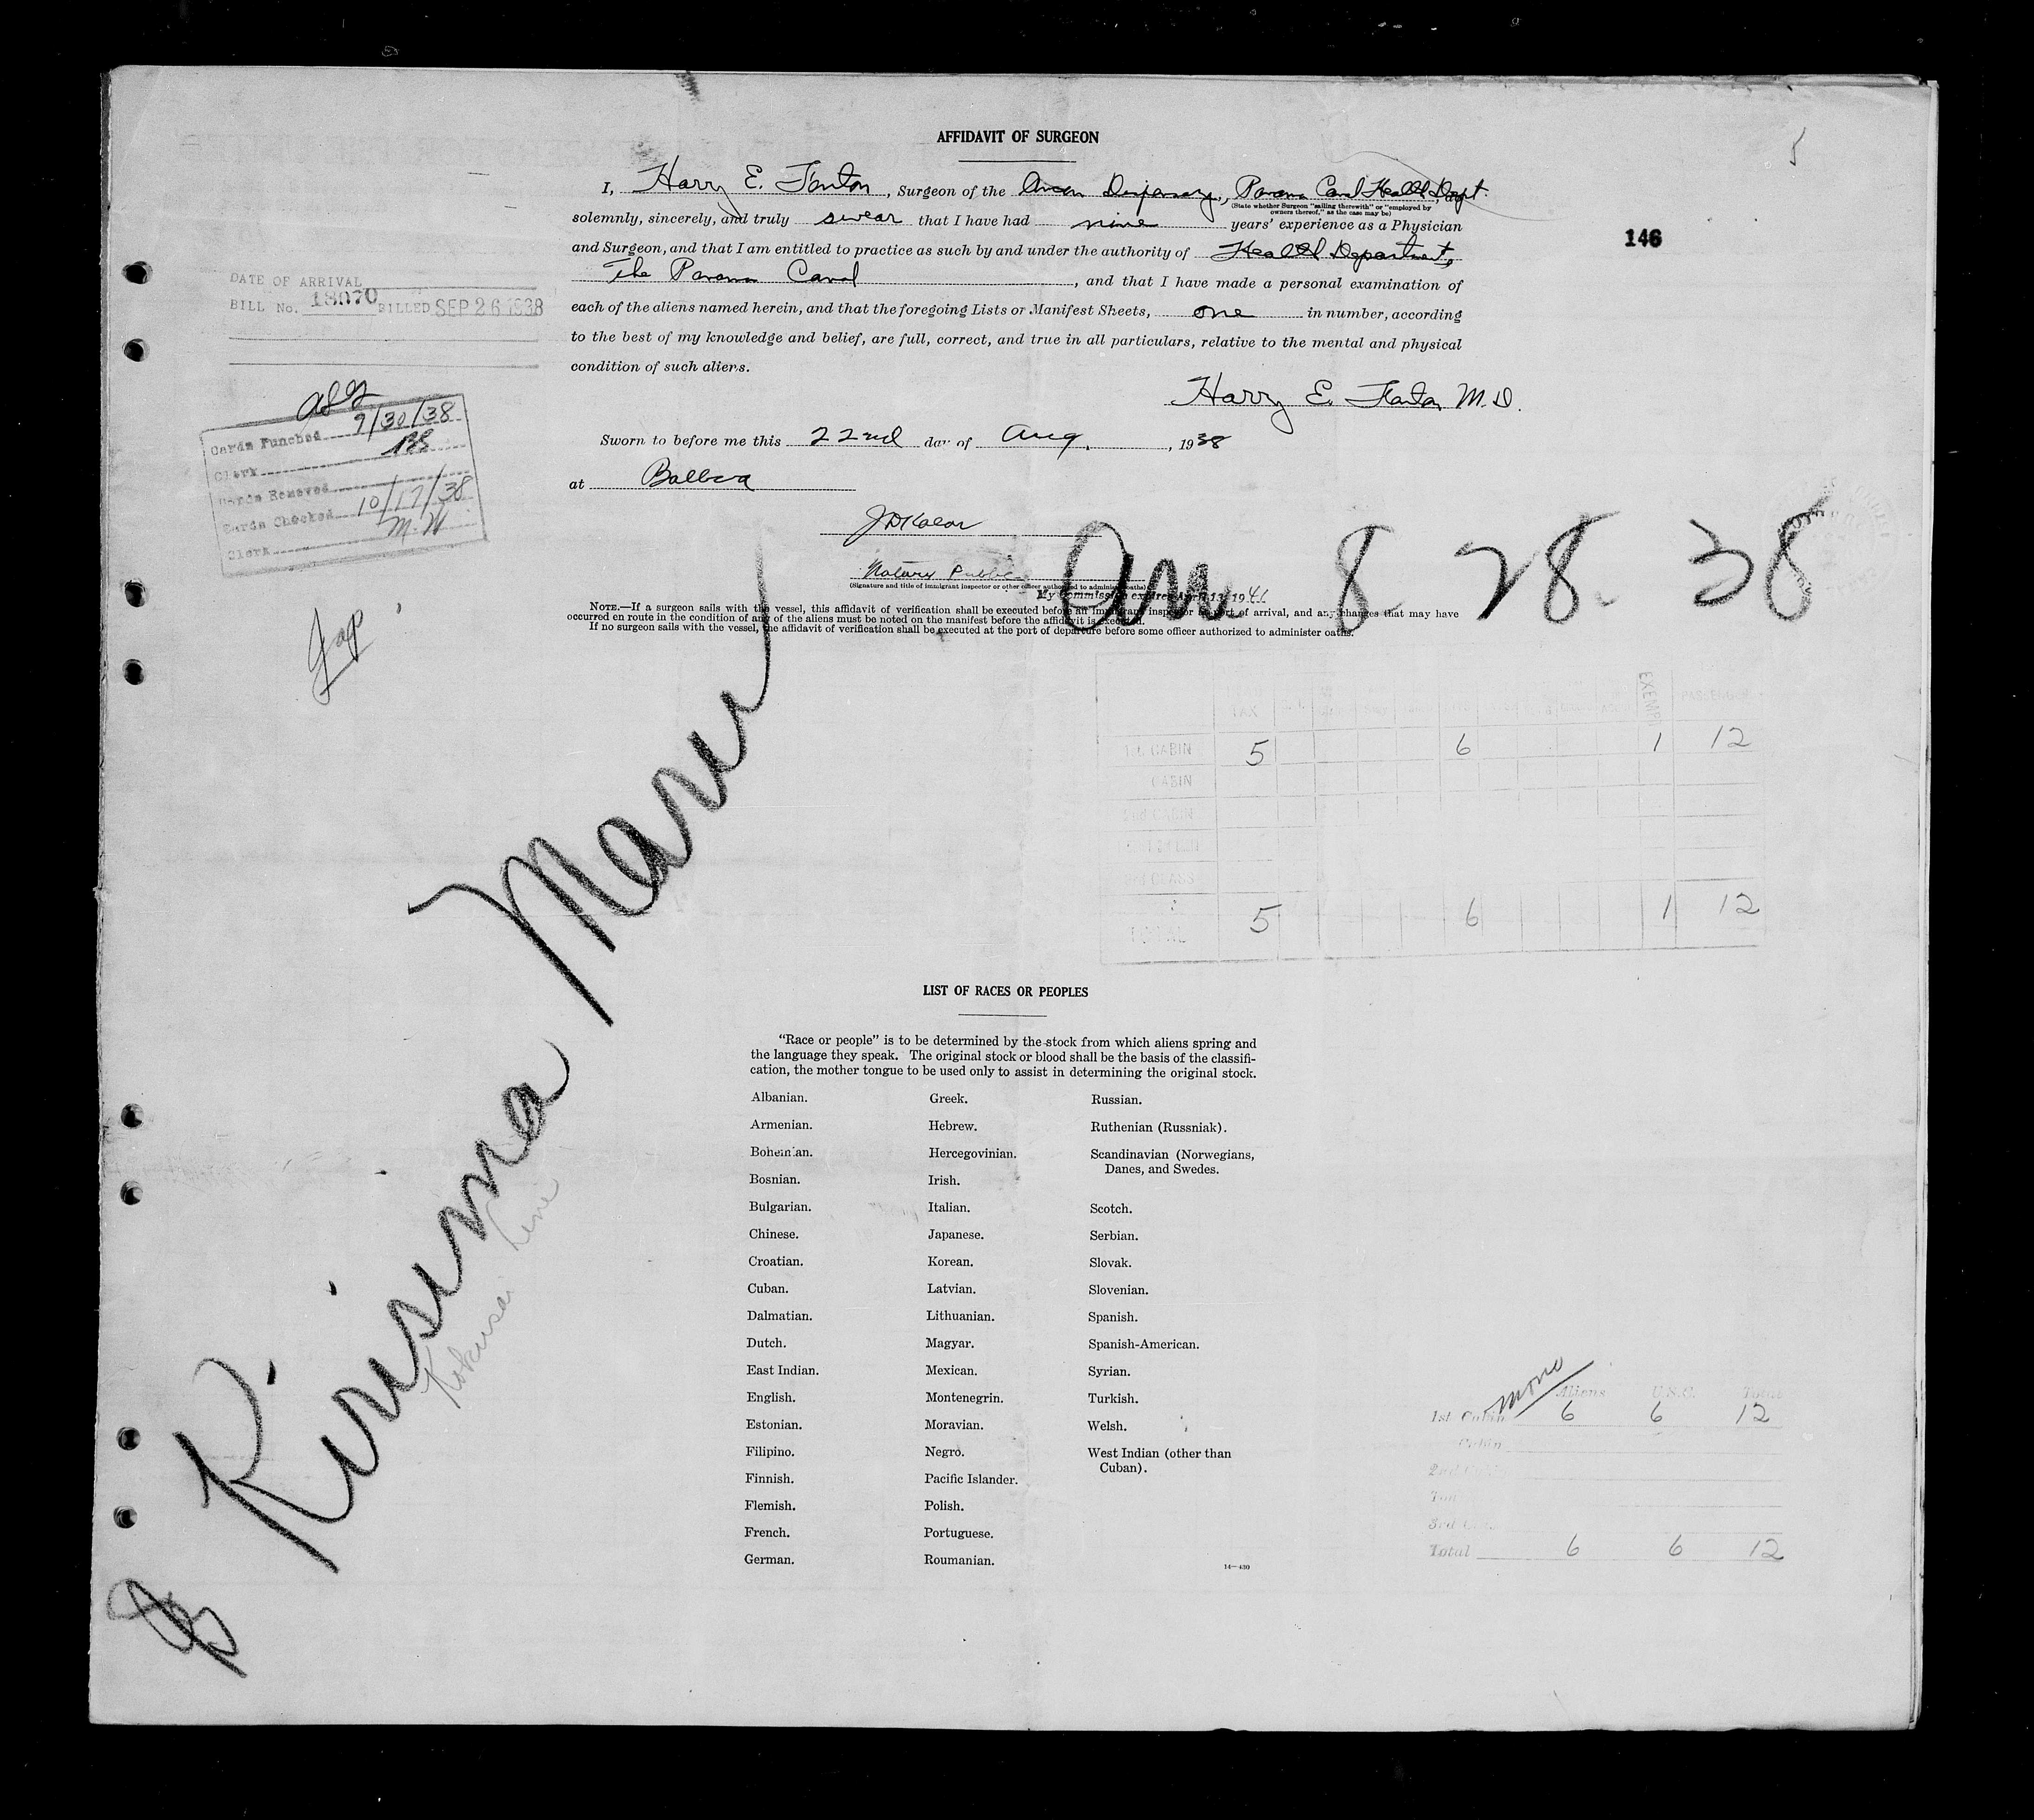 AFFIDAVIT OF SURGEON
5
I, Harry E. Fenton, Surgeon of the Ancon Dispensary, Panama Canal Health Dept.
(State whether Surgeon "sailing therewith" or "employed by
owners thereof," as the case may be)
solemnly, sincerely, and truly swear that I have had nine years' experience as a Physician
and Surgeon, and that I am entitled to practice as such by and under the authority of Health Department,
The Panama Canal, and that I have made a personal examination of
each of the aliens named herein, and that the foregoing Lists or Manifest Sheets, one in number, according
to the best of my knowledge and belief, are full, correct, and true in all particulars, relative to the mental and physical
condition of such aliens.
Harry E. Fenton M.D.
Sworn to before me this 22nd day of Aug., 1938
at Balboa
Notary Public
(Signature and title of immigrant inspector or other officer authorized to administer oaths)
My Commission expires April 13, 1941
NOTE.—If a surgeon sails with the vessel, this affidavit of verification shall be executed before an immigrant inspector at port of arrival, and any changes that may have
occurred en route in the condition of any of the aliens must be noted on the manifest before the affidavit is executed.
If no surgeon sails with the vessel, the affidavit of verification shall be executed at the port of departure before some officer authorized to administer oaths.
146
DATE OF ARRIVAL
BILL No. 13070 BILLED SEP 26 1938
Cards Punched 9/30/38
Clerk
Cards Removed
Cards Checked 10/17/38
Clerk M.W
Jap.
Arr. 8 28 38
Kirisima Maru
Kokusai Line
TAX EXEMPT PASSENGERS
1st CABIN 5 6 1 12
CABIN
2nd CABIN
3rd CLASS
TOTAL 5 6 1 12
LIST OF RACES OR PEOPLES
"Race or people" is to be determined by the stock from which aliens spring and
the language they speak. The original stock or blood shall be the basis of the classifi-
cation, the mother tongue to be used only to assist in determining the original stock.
Albanian.
Armenian.
Bohemian.
Bosnian.
Bulgarian.
Chinese.
Croatian.
Cuban.
Dalmatian.
Dutch.
East Indian.
English.
Estonian.
Filipino.
Finnish.
Flemish.
French.
German.
Greek.
Hebrew.
Hercegovinian.
Irish.
Italian.
Japanese.
Korean.
Latvian.
Lithuanian.
Magyar.
Mexican.
Montenegrin.
Moravian.
Negro.
Pacific Islander.
Polish.
Portuguese.
Roumanian.
Russian.
Ruthenian (Russniak).
Scandinavian (Norwegians,
Danes, and Swedes.
Scotch.
Serbian.
Slovak.
Slovenian.
Spanish.
Spanish-American.
Syrian.
Turkish.
Welsh.
West Indian (other than
Cuban).
14—430
Aliens U.S.C. Total
1st Cabin 6 6 12
Cabin
2nd Cabin
Total 6 6 12